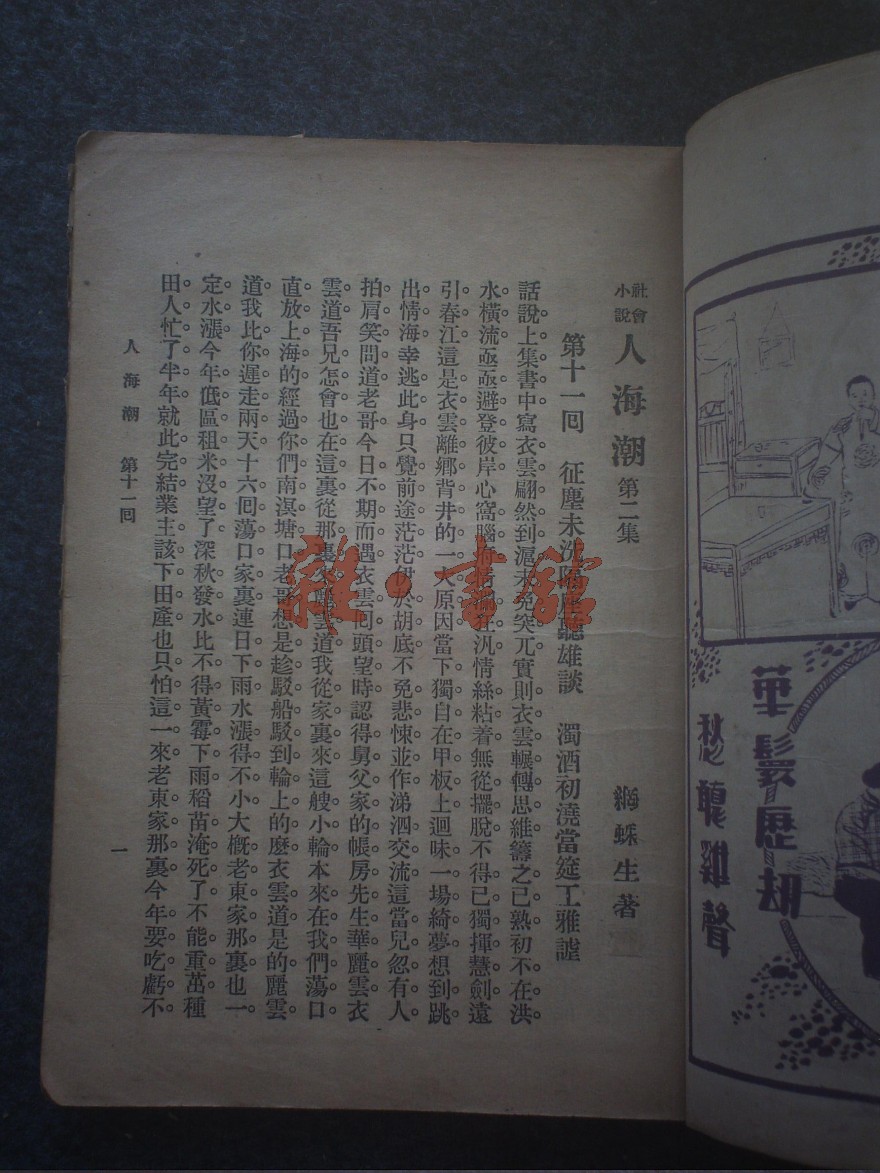 社會
小說
人海潮 第二集
網蛛生著
第十一回 征塵未洗隔座聽雄談 濁酒初澆當筵工雅謔
話說上集書中寫衣雲翩然到滬未免突兀實則衣雲輾轉思維籌之已熟初不在洪
水橫流亟亟避登彼岸心窩腦府情瀾狂汎情絲粘着無從擺脫不得已獨揮慧劍遠
引春江這是衣雲離鄉背井的一大原因當下獨自在甲板上迴味一場綺夢想到跳
出情海幸逃此身只覺前途茫茫伊於胡底不免悲悚並作涕泗交流這當兒忽有人
拍肩笑問道老哥今日不期而遇衣雲囘頭望時認得舅父家的帳房先生華麗雲衣
雲道吾兄怎會也在這裏從那裏來麗雲道我從家裏來這艘小輪本來在我們蕩口
直放上海的經過你們南溟塘口老哥想是趁駁船駁到輪上的麽衣雲道是的麗雲
道我比你遲走兩天十六囘蕩口家裏連日下雨水漲得不小大槪老東家那裏也一
定水漲今年低區租米沒望了深秋發水比不得黃霉下雨稻苗淹死了不能重茁種
田人忙了半年就此完結業主該下田產也只怕這一來老東家那裏今年要吃虧不
人海潮 第十一回
一
華鬘歷劫
愁聽雞聲
雜·書館